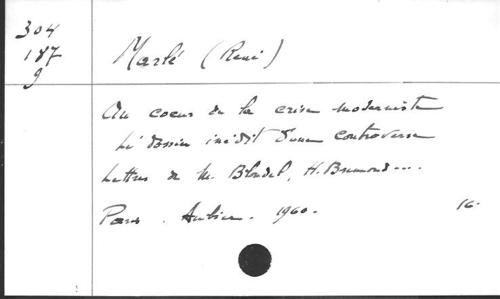 304
187
9
Marlé (René)
Au coeur de la crise moderniste
Le dossier inédit d'une controverse
Lettres de M. Blondel, H. Bremond...
Paris. Aubier. 1960. 16.